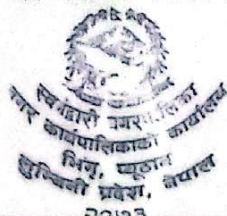 स्वर्गद्वारी नगरपालिका
नगर कार्यपालिकाको कार्यालय
भिंगृ, प्यूठान
लुम्बिनी प्रदेश, नेपाल
२०७३